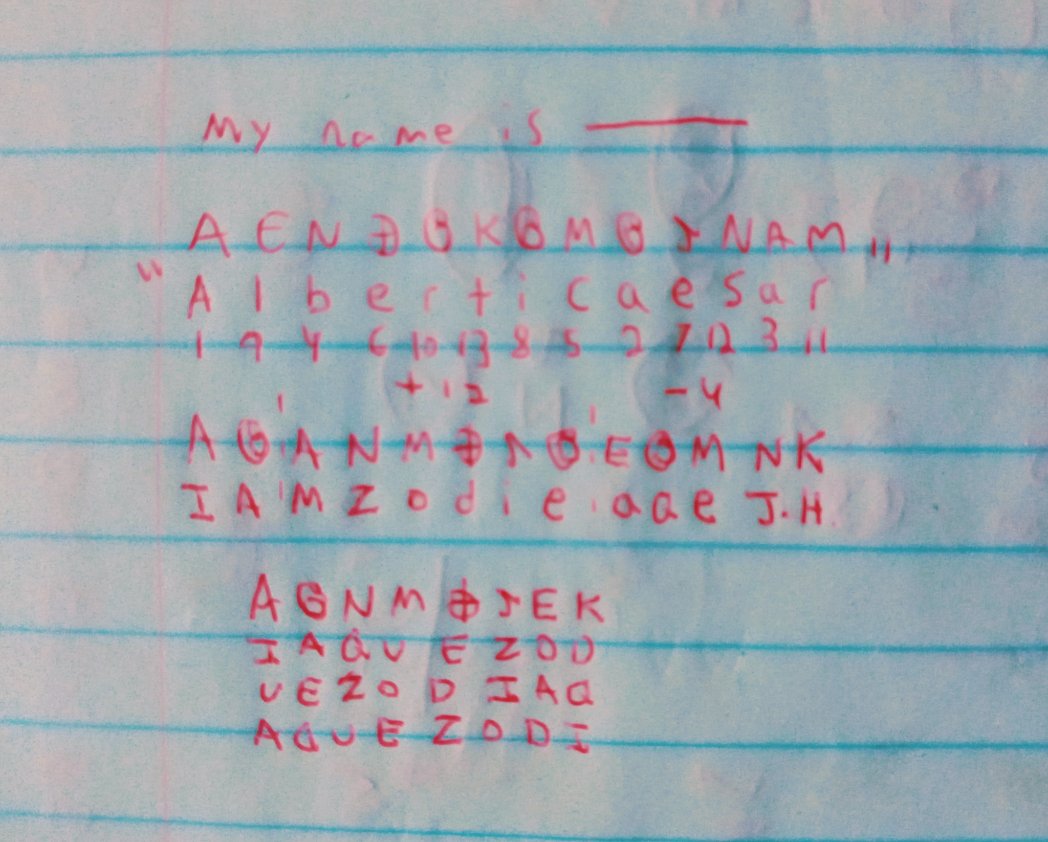 My name is ———
A E N ⌖ ⊕ K ⊕ M ⊕ ⅃ N A M "
" A l b e r t i C a e s a r
1 9 4 6 10 13 8 5 2 7 12 3 11
+12 -4
A ⊕ ' A N M ⌖ ⅃ ⊕ ' E ⊕ M N K
I A ' M Z o d i e ' a a e J.H.
A ⊕ N M ⌖ ⅃ E K
I A Q U E Z O D
U E Z O D I A Q
A Q U E Z O D I